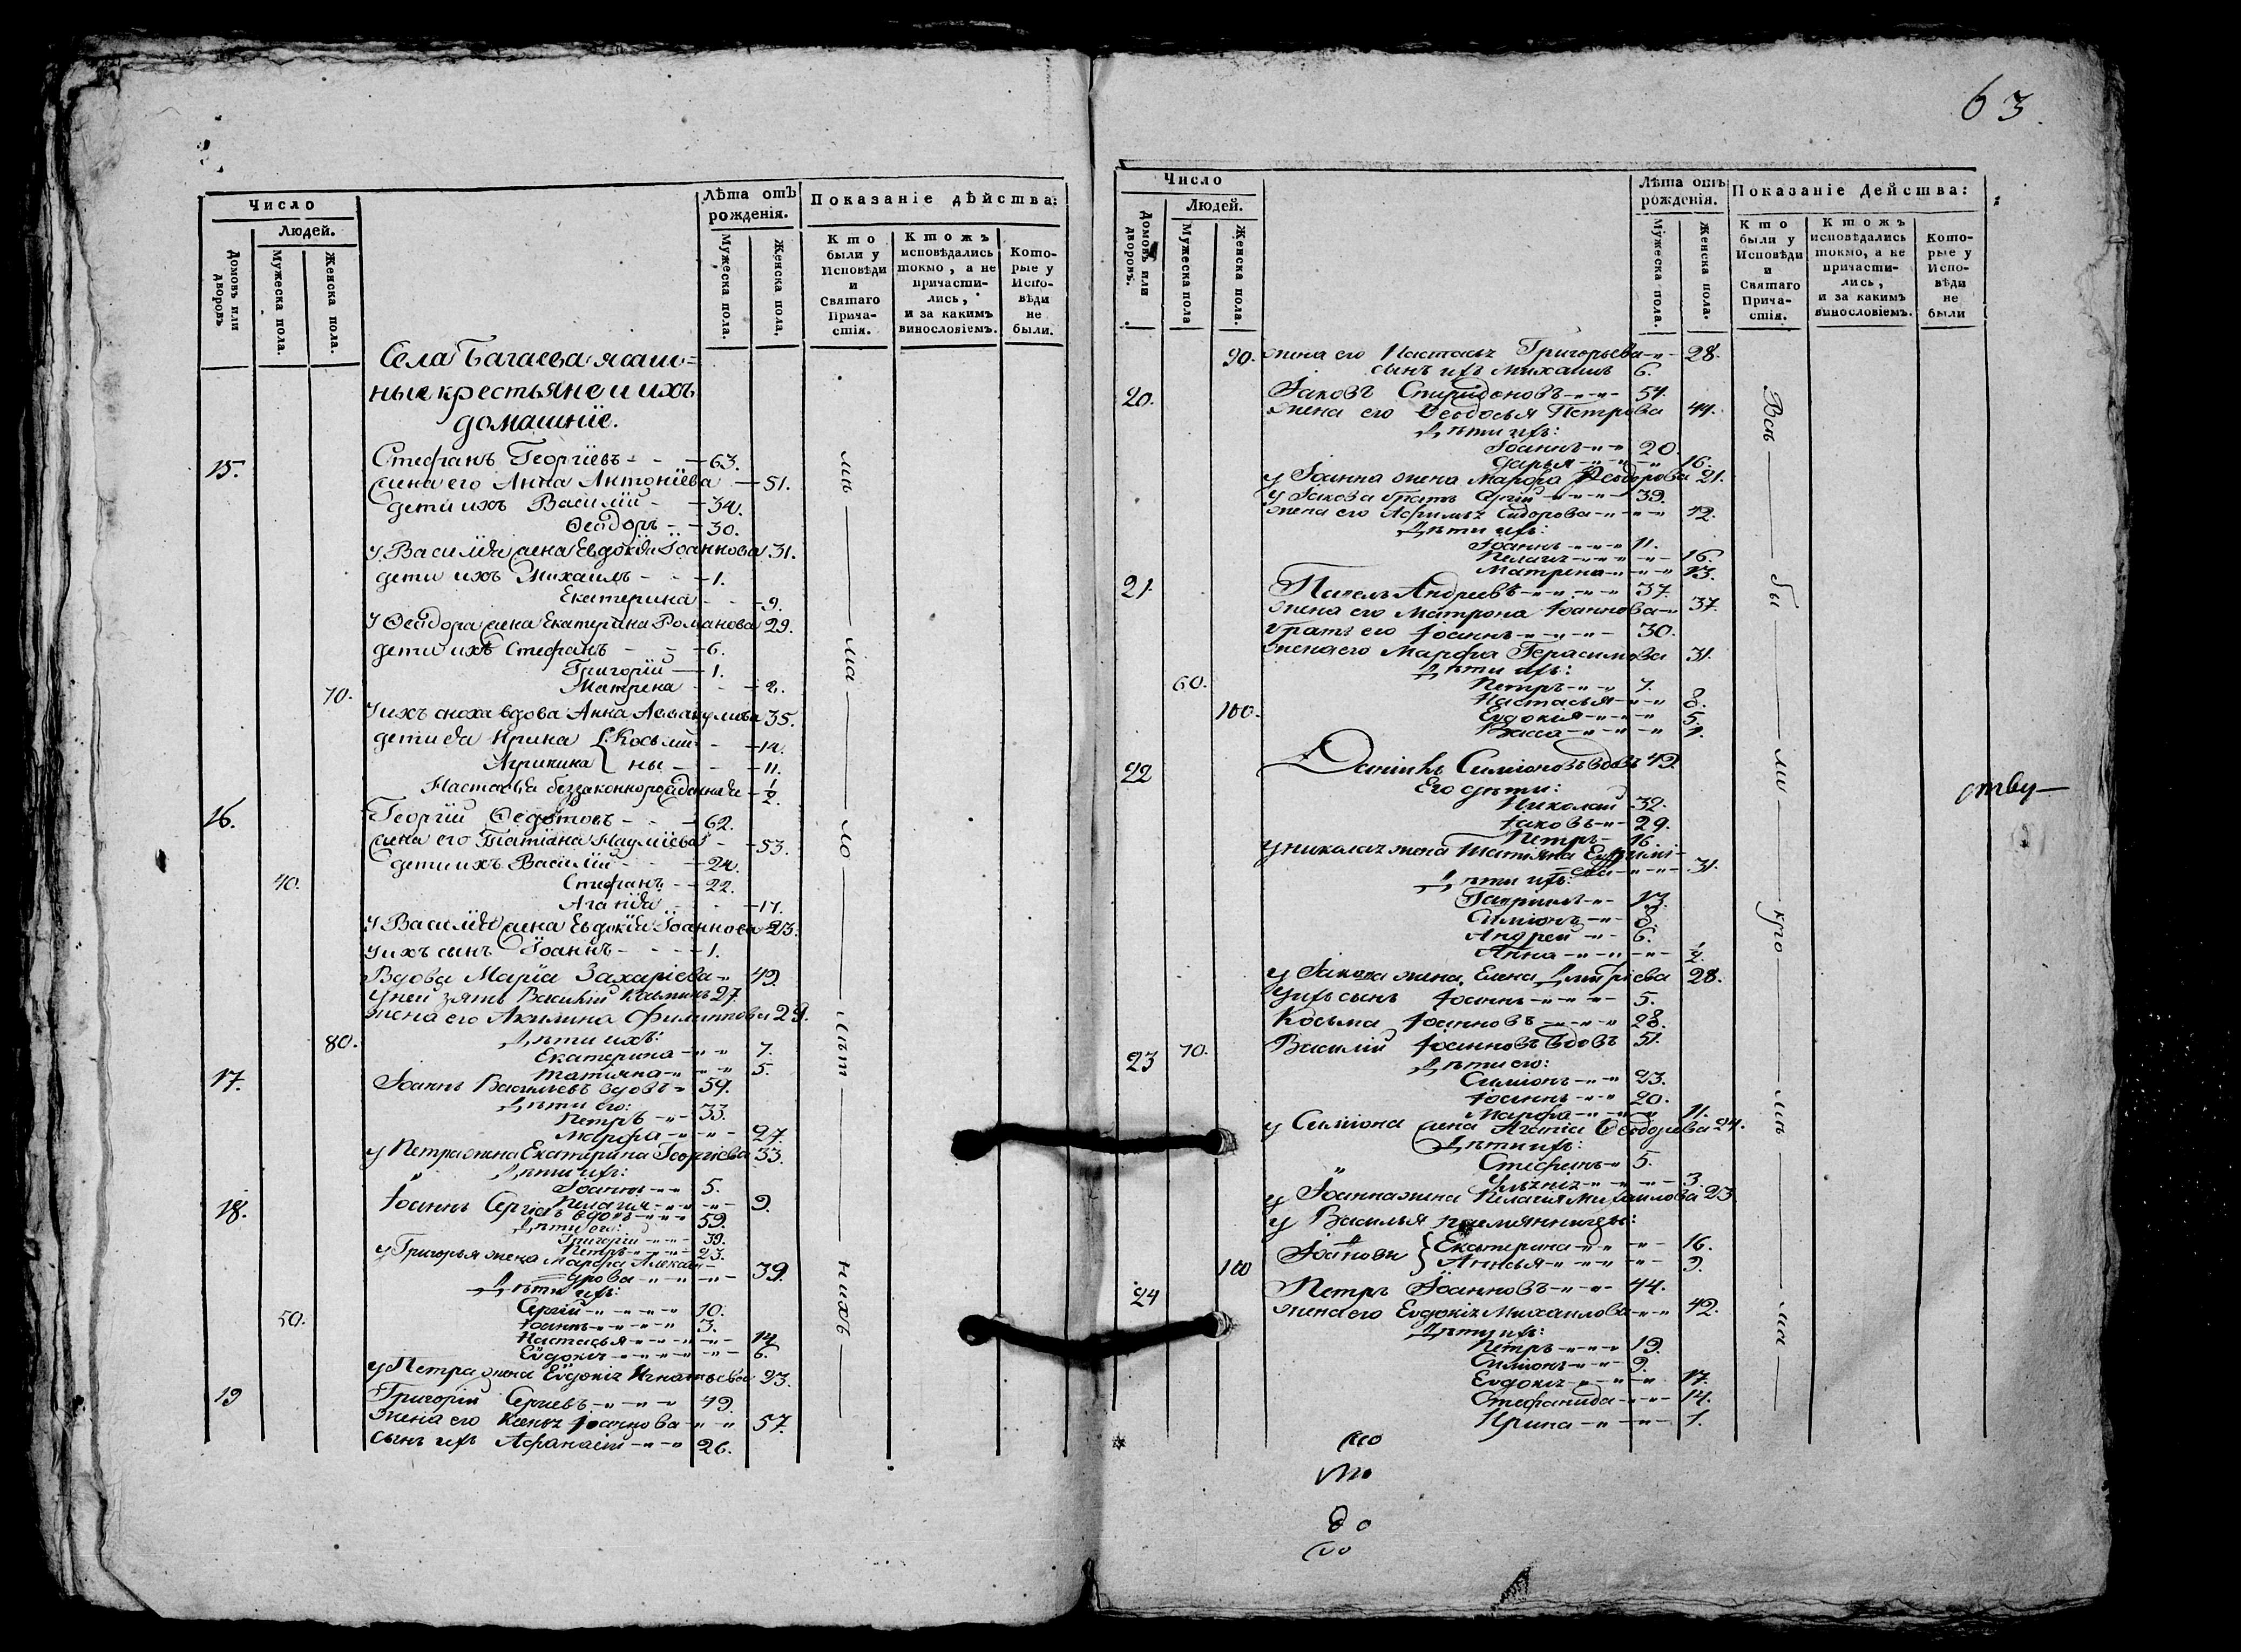 63.
Число
Людей.
Домовъ или дворовъ
Мужеска пола.
Женска пола.
Лѣта отъ рожденія.
Мужеска пола.
Женска пола.
Показаніе дѣйства:
Кто были у Исповѣди и Святаго Прича-стія.
Ктожъ исповѣдались токмо, а не причасти-лись, и за какимъ винословіемъ.
Кото-рые у Испо-вѣди не были.
Села Багаева ясаш=
ные крестьяне и ихъ
домашніе.
15. Стефанъ Георгіевъ - - 63.
жена его Анна Антоніева 51.
дети ихъ Василій - 34.
Ѳеодоръ - 30.
у Василія жена Евдокія Іоаннова 31.
дети ихъ Михаилъ - - 1.
Екатерина - - 9.
у Ѳеодора жена Екатерина Романова 29.
дети ихъ Стефанъ - - 6.
Григорій - 1.
70. Матрена - - 2.
у ихъ сноха вдова Анна 35.
дети ея Ирина { Косьми - 14.
Акулина { ны - - 11.
Настасья беззаконнорожденная 1/2.
16. Георгій Ѳедотовъ - - - 62.
жена его Татіана Наумиева - 53.
дети ихъ Василій - - - 24.
40. Стефанъ - - 22.
Агапія - - 17.
у Василія жена Евдокія Іоаннова 23.
у ихъ сынъ Іоаннъ - - - 1.
Вдова Марія Захаріева - 49.
у ней зять Василій Косминъ 27.
жена его Акилина Филиппова 29.
80. Дѣти ихъ:
Екатерина - " - " 7.
Татіяна - " - " 5.
17. Іоаннъ Васильевъ вдовъ - 59.
Дѣти его:
Петръ - " - 33.
Марфа - " - " - 27.
у Петра жена Екатерина Георгіева 33.
Дѣти ихъ:
Іоаннъ - " 5.
Пелагія - " - " - 9.
18. Іоаннъ Сергіевъ вдовъ - " - 59.
Дѣти его:
Григорій - " - 39.
Петръ - " - " - 23.
у Григорья жена Марфа Алексан-
дрова - " - " - 39.
Дѣти ихъ:
Сергій - " - " - " 10.
50. Іоаннъ - " - " - " 3.
Настасья - " - " - " - 14.
Евдокія - " - " - " - 6.
у Петра жена Евдокія Игнатьева 23.
19 Григорій Сергіевъ - " - " 49.
жена его Ксенія Іоаннова - " - " 57.
сынъ ихъ Афанасій - " - " 26.
мъ — ма — ло — лѣт — нихъ —
Число
Людей.
Домовъ или дворовъ.
Мужеска пола
Женска пола.
Лѣта отъ рожденія.
Мужеска пола.
Женска пола.
Показаніе Действа:
Кто были у Исповѣди и Святаго Прича-стія.
Ктожъ исповѣдались токмо, а не причасти-лись, и за какимъ винословіемъ.
Кото-рые у Испо-вѣди не были
90. жена его Настасья Григорьева - " - 28.
сынъ ихъ Михаилъ 6.
20. Іаковъ Спиридоновъ - " - " - 54.
жена его Ѳеодосья Петрова 44.
Дѣти ихъ:
Іоаннъ - " - " 20.
Дарья - " - " - " 16.
у Іоанна жена Марфа Ѳеодорова 21.
у Іакова братъ Сергій - " - " - 39.
жена его Афимья Сидорова - " - " 42.
Дѣти ихъ:
Іоаннъ - " - " 11.
Пелагія - " - " - " 16.
Матрена - " - " - " 13.
21. Павелъ Андреевъ - " - " - " 37.
жена его Матрона Іоаннова - " 37.
братъ его Іоаннъ - " - " - " - 30.
жена его Марфа Герасимова 31.
Дѣти ихъ:
60. Петръ - " - " 7.
Настасья - " - " 8.
100. Евдокія - " - " - " 5.
Васса - " - " - " 1.
22 Даніилъ Симіоновъ вдовъ 49.
Его дѣти:
Николай 32.
Іаковъ - " - 29.
Петръ - 16.
у Николая жена Татіяна Евфимі-
ева - " - " - 31.
Дѣти ихъ:
Гавриилъ - " - 13.
Симіонъ - " - 8.
Андрей - " - 6.
Анна - " - " - " - 1/2.
у Іакова жена Елена Дмитріева 28.
у ихъ сынъ Іоаннъ - " - " - " - 5.
Косьма Іоанновъ - " - " - " 28.
23 70. Василій Іоанновъ вдовъ 51.
Дѣти его:
Симіонъ - " - " 23.
Іоаннъ - " - " 20.
Марфа - " - " - " 11.
у Симіона жена Агапія Ѳеодорова 24.
Дѣти ихъ:
Стефанъ - " 5.
- " - " - " - 3.
у Іоанна жена Пелагія Михаилова 23.
у Василья племянницы:
Іоаннови { Екатерина - " - " - " - 16.
100 { Анисья - " - " - " - " - 9.
24 Петръ Іоанновъ - " - " - 44.
жена его Евдокія Михаилова - " - " 42.
Дѣти ихъ:
Петръ - " - " - " 19.
Симіонъ - " - " - 9.
Евдокія - " - " - " 17.
Стефанида - " - " - 14.
Ирина - " - " - 1.
Всѣ — бы — ли — кро — мѣ — ма —
ству —